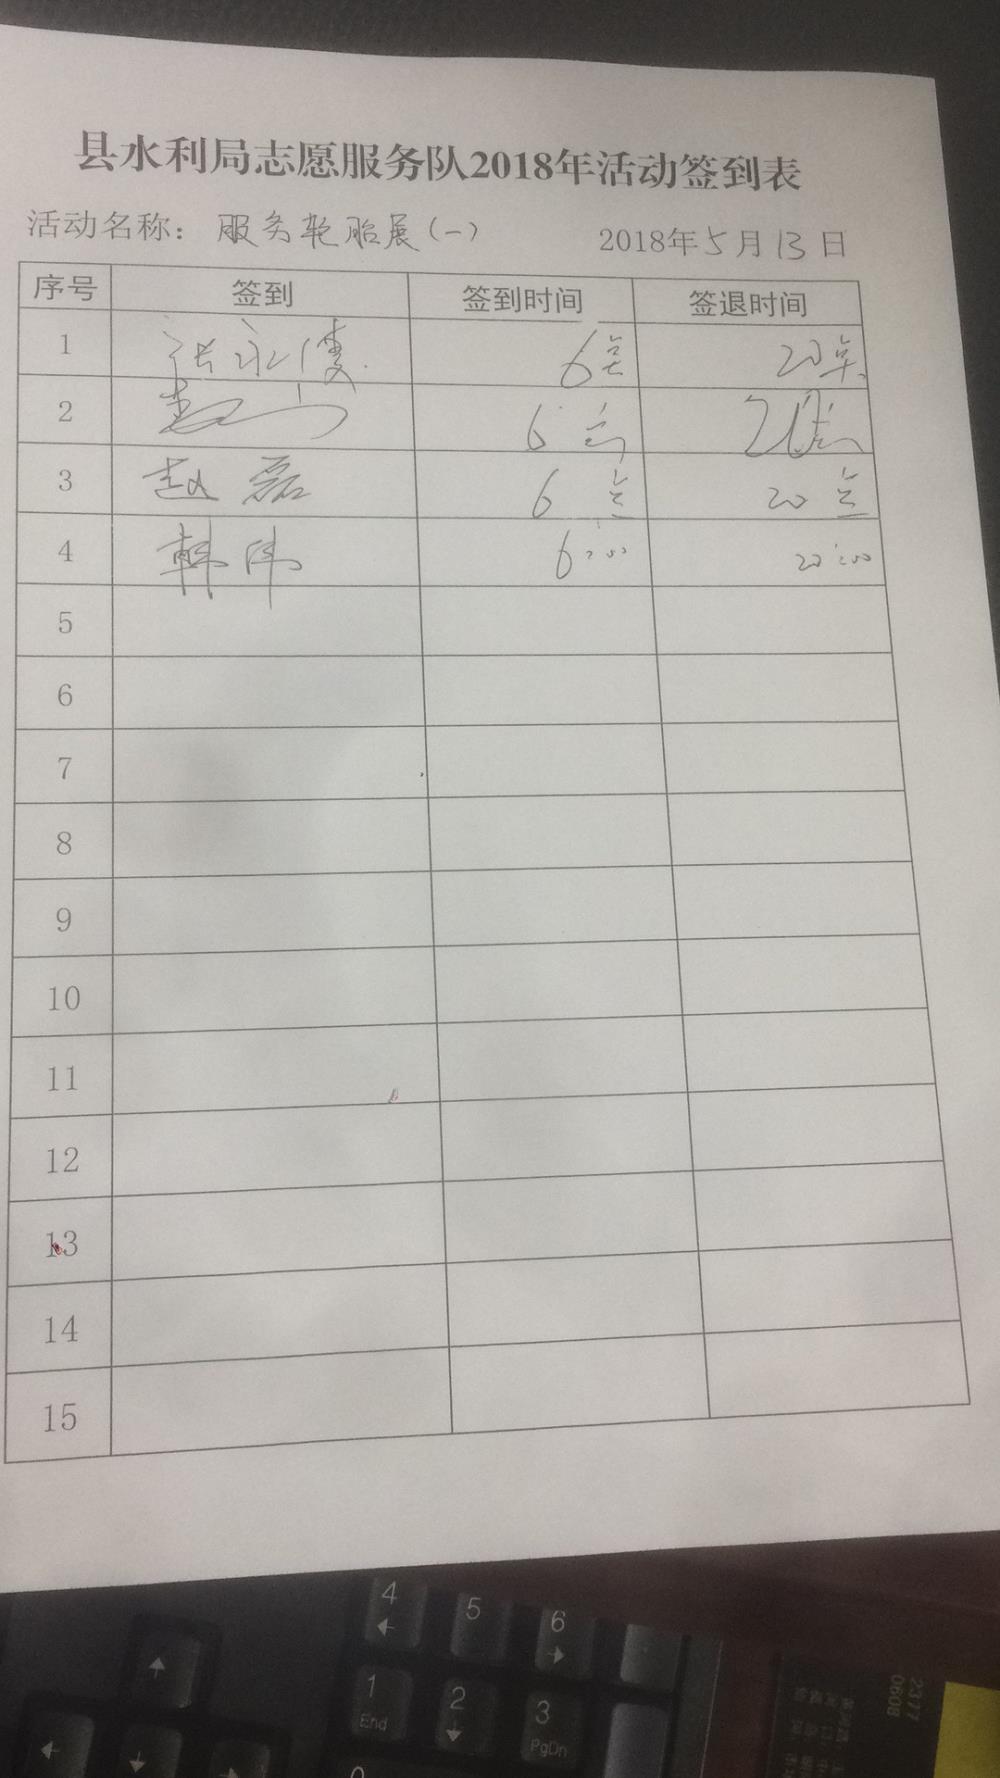 县水利局志愿服务队2018年活动签到表
活动名称：服务轮胎展(一) 2018年5月13日
序号 签到 签到时间 签退时间
1 张永俊 6点 20点
2 6点 20点
3 赵磊 6点 20点
4 韩伟 6:00 20:00
5
6
7
8
9
10
11
12
13
14
15
4 5 6
1 2 3
End PgDn
0
2377
0608